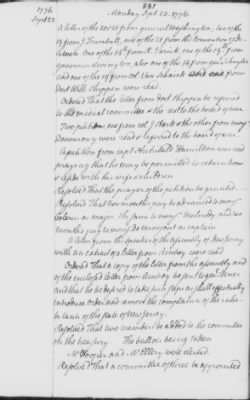 1776
Sept 23
881
Monday Sept. 23. 1776.
A letter of the 20 & 21 from general Washington, two of the
19 from J Trumbull, one of the 21 from the Convention of
one of the 16th from R. Varick, one of the 19th from
governor Livingston, also one of the 14 from gen Schuyler
and one of the 19 from col Van Schaick and one from
Doct Will Shippen were read.
Ordered That the letter from Doct Shippen be referred
to the medical committee & the rest to the board of war.
Two petitions one from col J Stark & the other from monsr
Devermonet were read & referred to the board of war.
A petition from capt Archibald Hamilton was read
praying that he may be permitted to return home
& reside with his wife & children
Resolved That the prayer of the petition be granted.
Resolved That two months pay be advanced to monsr
as major, the same to monsr Malmedy, and two
months pay to monsr de Vermonet as captain
A letter from the speaker of the assembly of New Jersey
with an extract of a letter from Amboy were read
Ordered That a copy of the letter from the assembly and
of the enclosed letter from Amboy be sent to gen Mercer
and that he be desired to take such steps as shall effectually
introduce order and remove the complaints of the inha-
bitants of the state of New Jersey.
Resolved That two members be added to the committee
on the treasury. The ballots being taken
Mr Hooper and Mr Ellery were elected.
Resolved That a committee of three be appointed